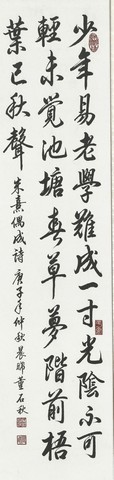 少年易老學難成一寸光陰不可
輕未覺池塘春草夢階前梧
葉已秋聲
朱熹偶成詩 庚子年仲秋晨曦董石秋